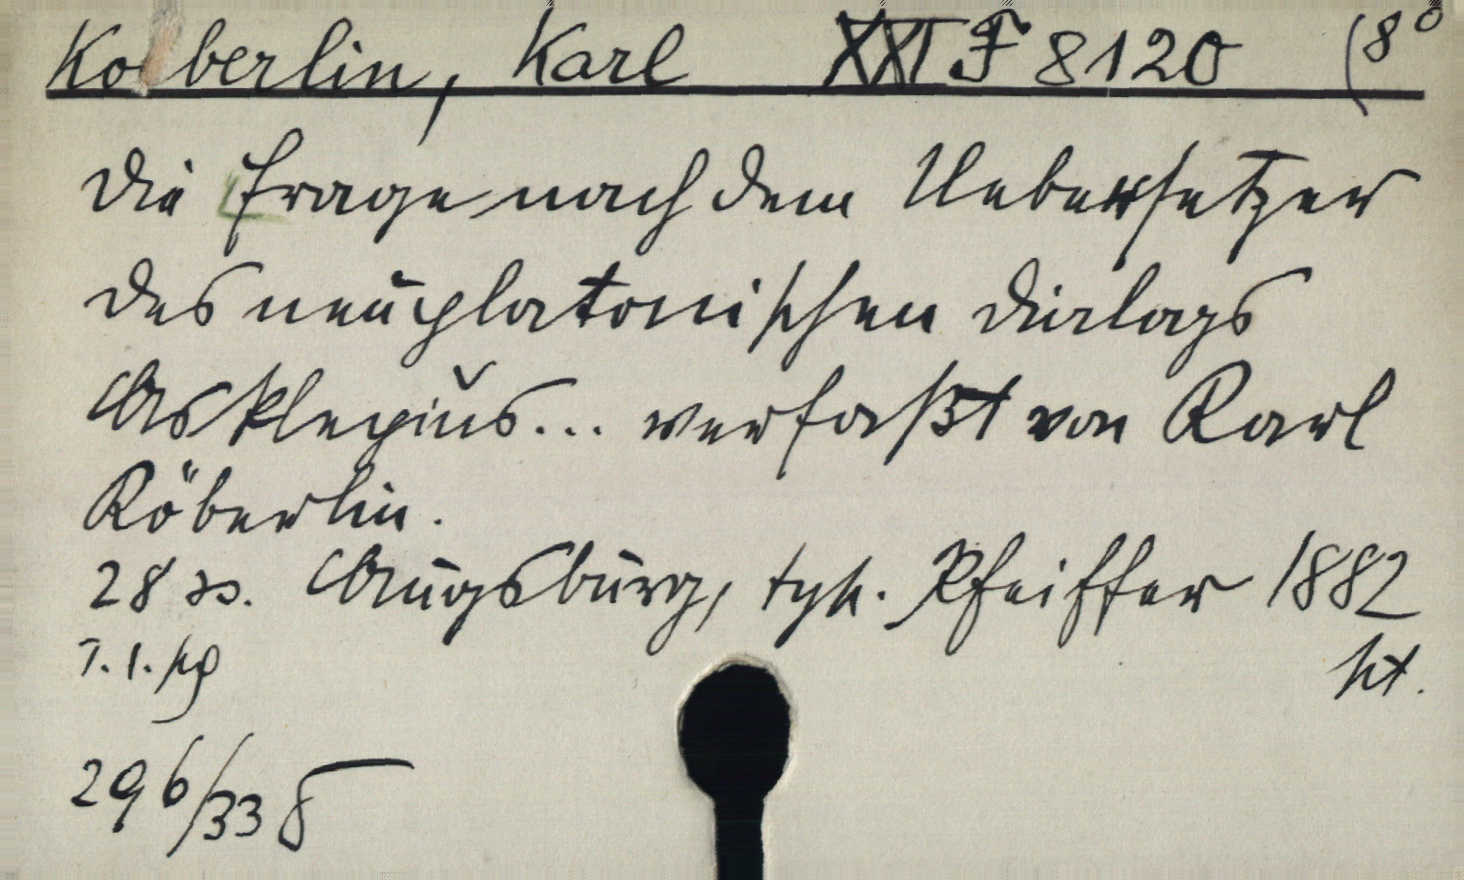 Koberlin, Karl XXI F 8120 (8°
Die Frage nach dem Uebersetzer
des neuplatonischen Dialogs
Asklepius... verfaßt von Karl
Köberlin.
28 SS. Augsburg, typ. Pfeiffer 1882
7.1.
296/33